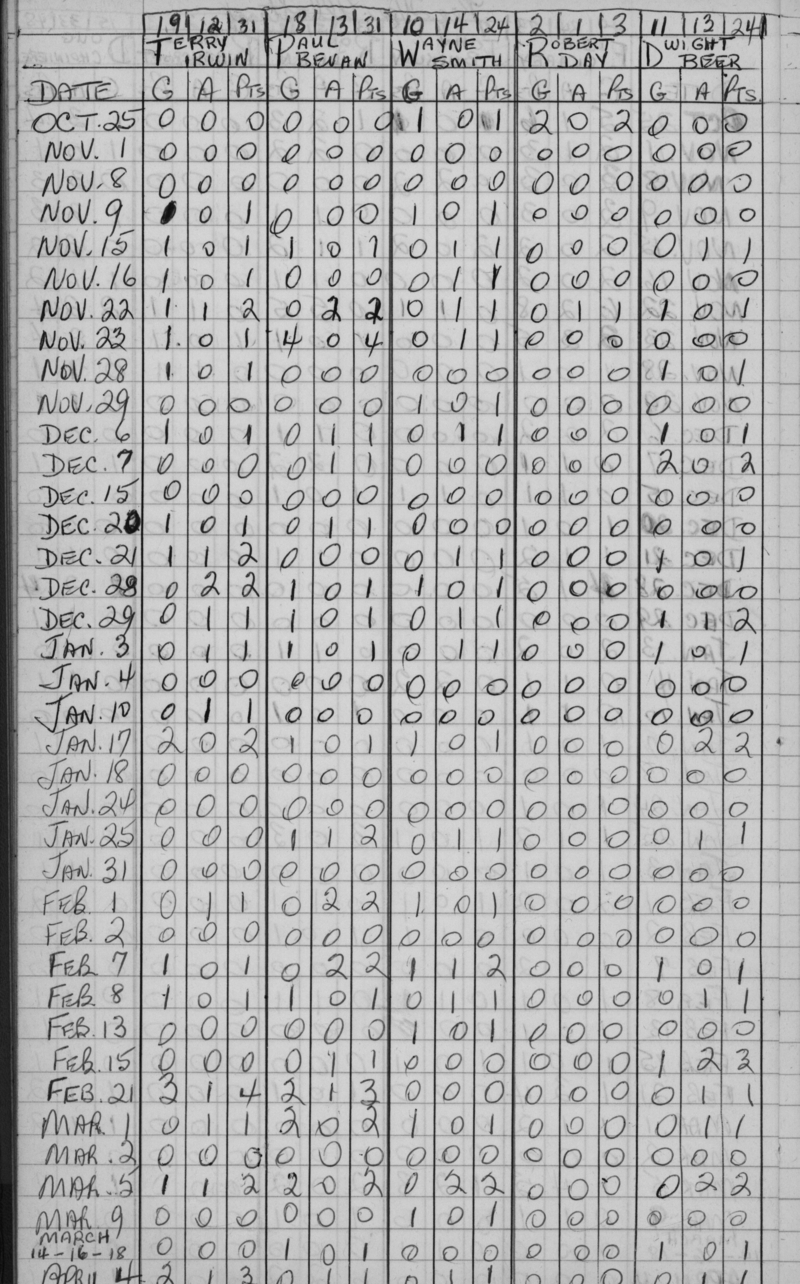 19 12 31 18 13 31 10 14 24 2 1 3 11 13 24
TERRY IRWIN PAUL BEVAN WAYNE SMITH ROBERT DAY DWIGHT BEER
DATE G A Pts G A Pts G A Pts G A Pts G A Pts
OCT. 25 0 0 0 0 0 0 1 0 1 2 0 2 0 0 0
NOV. 1 0 0 0 0 0 0 0 0 0 0 0 0 0 0 0
NOV. 8 0 0 0 0 0 0 0 0 0 0 0 0 0 0 0
NOV. 9 1 0 1 0 0 0 1 0 1 0 0 0 0 0 0
NOV. 15 1 0 1 1 0 1 0 1 1 0 0 0 0 1 1
NOV. 16 1 0 1 0 0 0 0 1 1 0 0 0 0 0 0
NOV. 22 1 1 2 0 2 2 0 1 1 0 1 1 1 0 1
NOV. 23 1 0 1 4 0 4 0 1 1 0 0 0 0 0 0
NOV. 28 1 0 1 0 0 0 0 0 0 0 0 0 1 0 1
NOV. 29 0 0 0 0 0 0 1 0 1 0 0 0 0 0 0
DEC. 6 1 0 1 0 1 1 0 1 1 0 0 0 1 0 1
DEC. 7 0 0 0 0 1 1 0 0 0 0 0 0 2 0 2
DEC. 15 0 0 0 0 0 0 0 0 0 0 0 0 0 0 0
DEC. 20 1 0 1 0 1 1 0 0 0 0 0 0 0 0 0
DEC. 21 1 1 2 0 0 0 0 1 1 0 0 0 1 0 1
DEC. 28 0 2 2 1 0 1 1 0 1 0 0 0 0 0 0
DEC. 29 0 1 1 1 0 1 0 1 1 0 0 0 1 1 2
JAN. 3 0 1 1 1 0 1 0 1 1 0 0 0 1 0 1
JAN. 4 0 0 0 0 0 0 0 0 0 0 0 0 0 0 0
JAN. 10 0 1 1 0 0 0 0 0 0 0 0 0 0 0 0
JAN. 17 2 0 2 1 0 1 1 0 1 0 0 0 0 2 2
JAN. 18 0 0 0 0 0 0 0 0 0 0 0 0 0 0 0
JAN. 24 0 0 0 0 0 0 0 0 0 0 0 0 0 0 0
JAN. 25 0 0 0 1 1 2 0 1 1 0 0 0 0 1 1
JAN. 31 0 0 0 0 0 0 0 0 0 0 0 0 0 0 0
FEB. 1 0 1 1 0 2 2 1 0 1 0 0 0 0 0 0
FEB. 2 0 0 0 0 0 0 0 0 0 0 0 0 0 0 0
FEB. 7 1 0 1 0 2 2 1 1 2 0 0 0 1 0 1
FEB. 8 1 0 1 1 0 1 0 1 1 0 0 0 0 1 1
FEB. 13 0 0 0 0 0 0 1 0 1 0 0 0 0 0 0
FEB. 15 0 0 0 0 1 1 0 0 0 0 0 0 1 2 3
FEB. 21 3 1 4 2 1 3 0 0 0 0 0 0 0 1 1
MAR. 1 0 1 1 2 0 2 1 0 1 0 0 0 0 1 1
MAR. 2 0 0 0 0 0 0 0 0 0 0 0 0 0 0 0
MAR. 5 1 1 2 2 0 2 0 2 2 0 0 0 0 2 2
MAR. 9 0 0 0 0 0 0 1 0 1 0 0 0 0 0 0
MARCH
14-16-18 0 0 0 1 0 1 0 0 0 0 0 0 1 0 1
APRIL 4 2 1 3 0 1 1 0 1 1 0 0 0 0 1 1